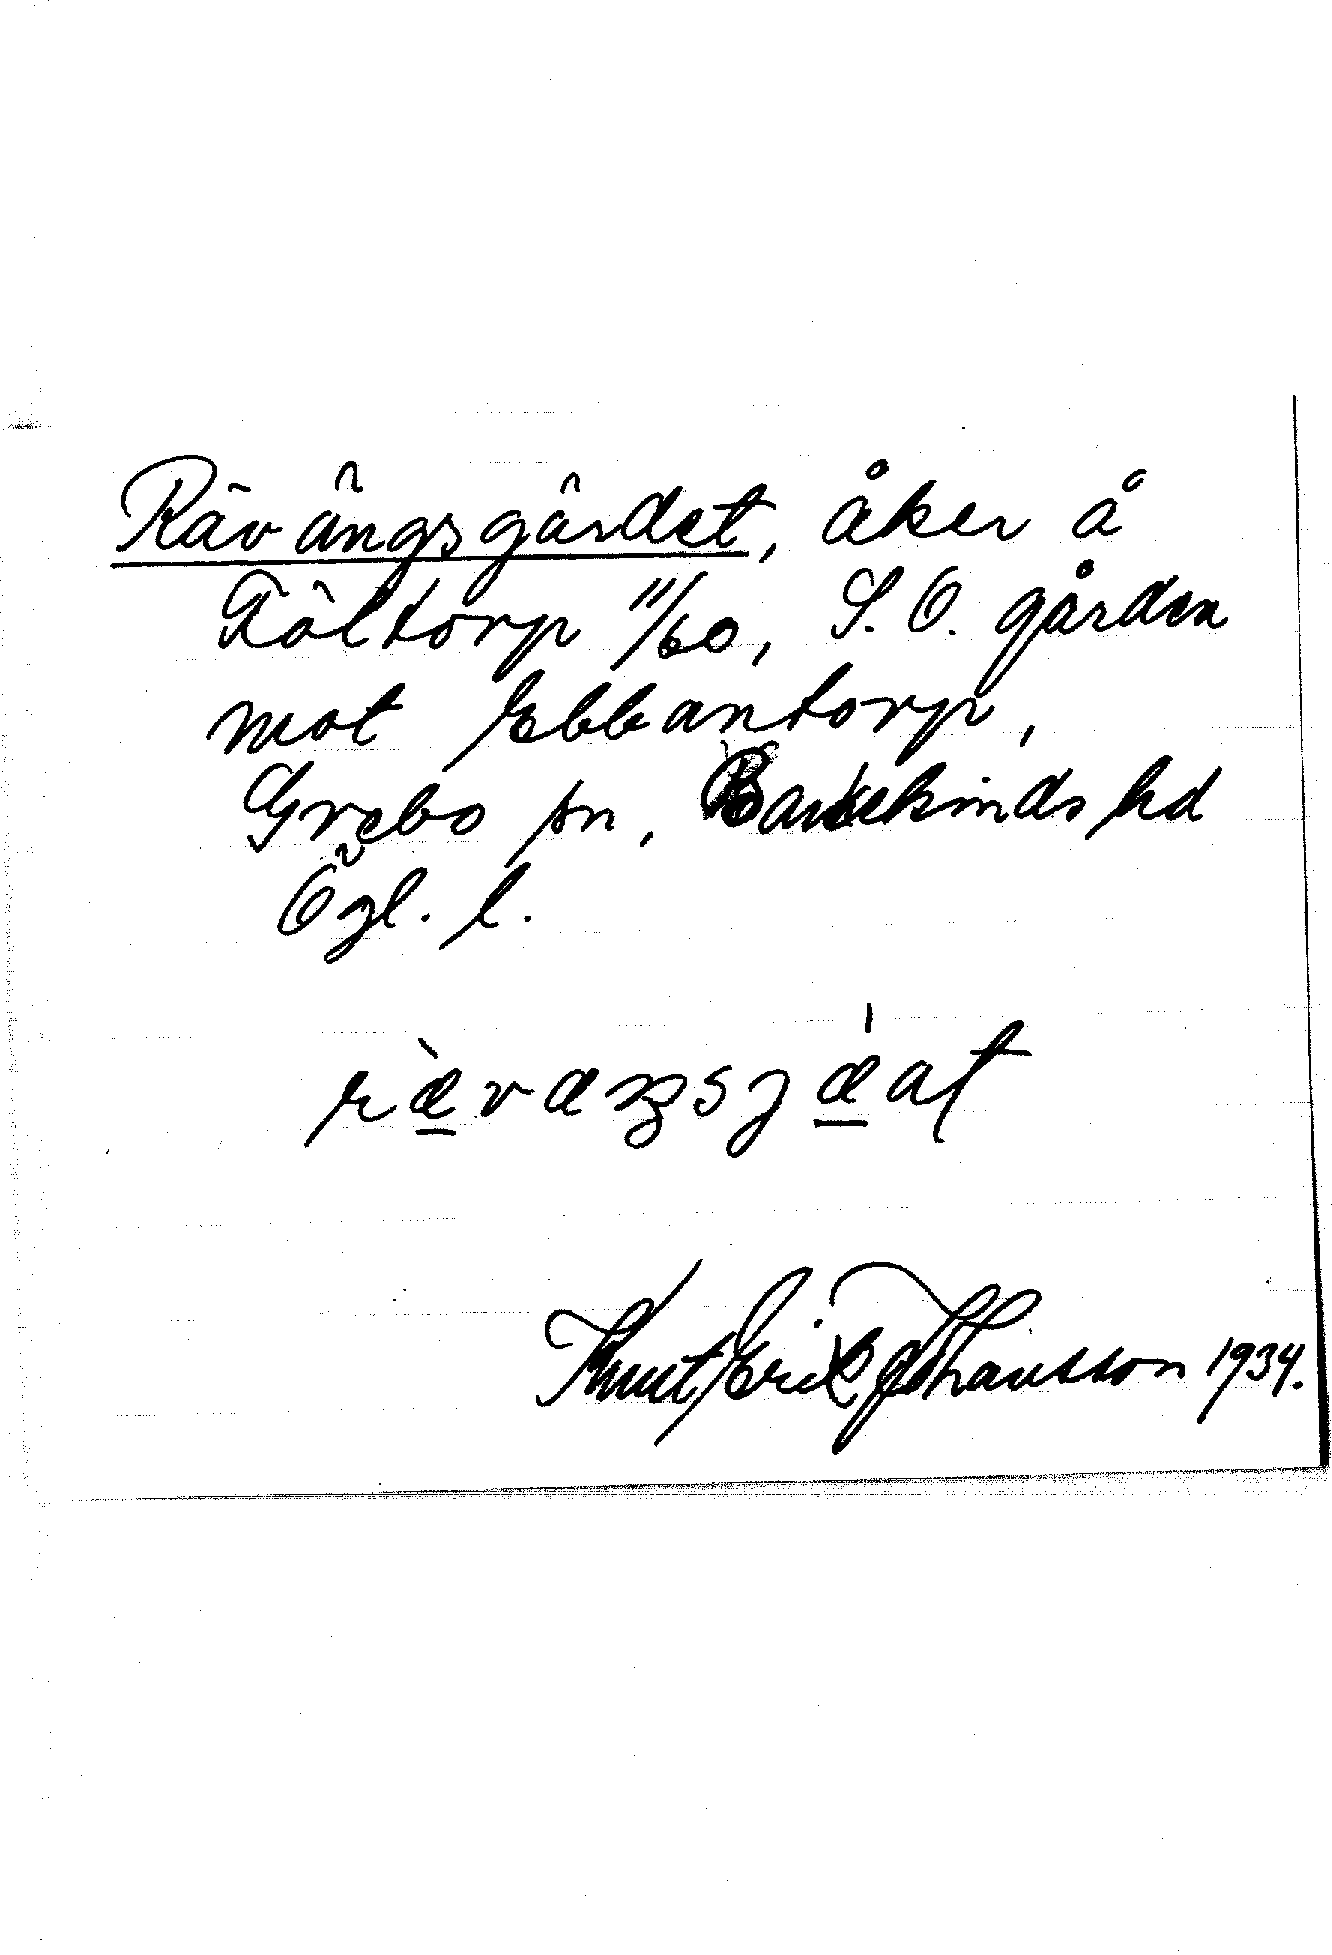 Rävängsgärdet, åker å
Föltorp 11/60, S. O. gården
mot Ebbantorp,
Grebo sn, Bankekinds hd
Ögl. l.
Knut Erik Johansson 1934.